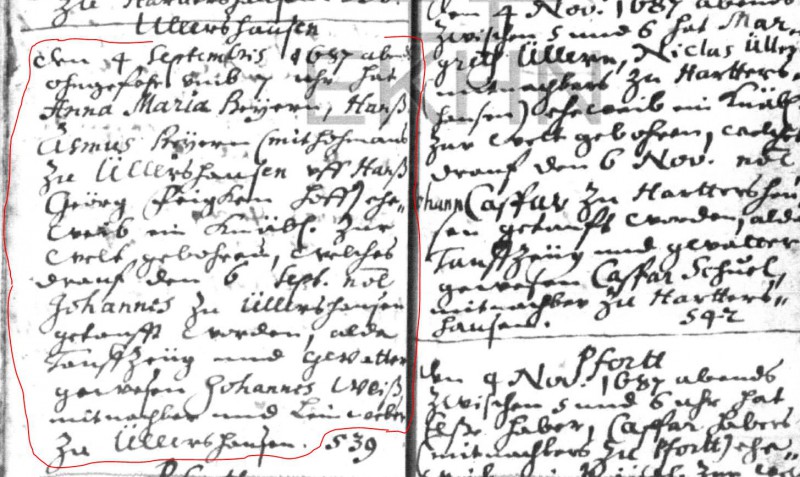 Üllershausen
den 4 Septembris 1687 abend
ohngefähr umb 7 uhr hat
Anna Maria Beÿern, Hanß
Asmus Beÿern (mithofmans
zu Üllershausen uff Hanß
Geörg hoff) ehe„
weib ein Knäbl. zur
welt gebohren, welches
drauf den 6 Sept. nōe
Johannes zu Üllershausen
getaufft worden, alda
tauffzeüg und Gevatter
gewesen Johannes Weiß
mitnachbar und Leinweber
zu Üllershausen. 539
den 4 Nov. 1687 abends
zwischen 5 und 6 hat Mar„
greth Üllern, Niclas Üller
mitnachbers zu Hartters„
hausen) eheweib ein Knäbl.
zur welt gebohren, welches
drauf den 6 Nov. nōe
Johann Casspar zu Harttershau„
sen getaufft worden, alda
tauffzeüg und gevatter
gewesen Casspar Schuel,
mitnachber zu Hartters„
hausen. 542
Pfortt
den 4 Nov. 1687 abends
zwischen 5 und 6 uhr hat
haber, Casspar habers
(mitnachbers zu Pfortt) ehe„